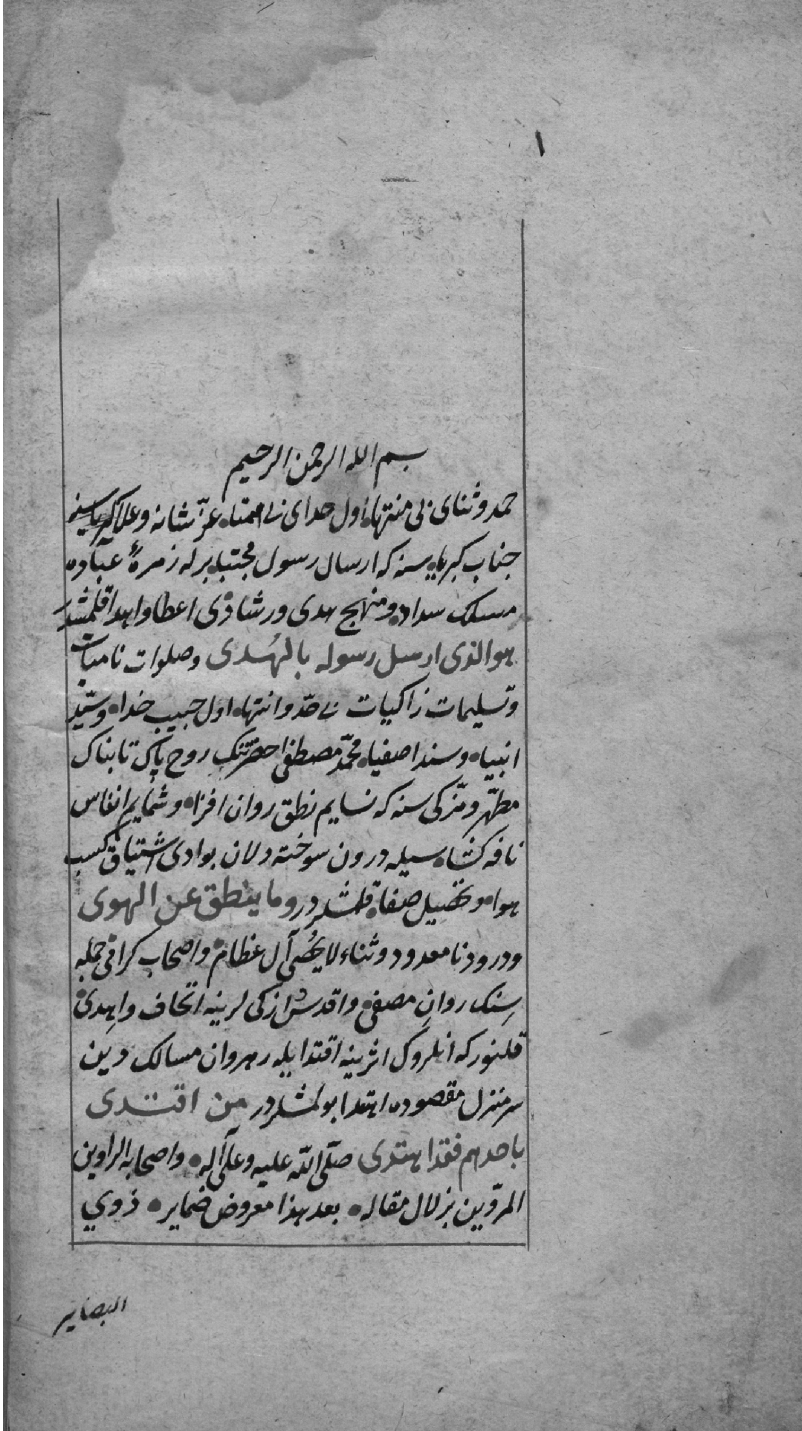 ١
بسم الله الرحمن الرحيم
حمد وثنای بی منتها اول خدای بی همتا عز شانه وعلا
جناب کبریاسنه که ارسال رسول مجتبا برله زمرۀ عباده
مسلک سداد ومنهاج هدی ورشادی اعطا واهدا قلمشدر
هو الذی ارسل رسوله بالهدی وصلوات نامیات
وتسلیمات زاکیات بی حد وانتها اول حبیب خدا وسید
انبیا وسند اصفیا محمد مصطفی حضرتنک روح پاک تابناک
مطهر ومزکی سنه که نسایم نطق روان افزا وشمایم انفاس
نافه کشا سیله درون سوخته دلان بوادی اشتیاق کسب
هوا وتحصیل صفا قلمشلردر وما ینطق عن الهوی
ودرود نامعدود وثناء لا یحصی آل عظام واصحاب کرامی جمله
سنک روان مصفی واقدس وازکی لرینه اتحاف واهدی
قلنور که انلروک اثرینه اقتدا ایله رهروان مسالک دین
سرمنزل مقصوده اهتدا بولمشلردر من اقتدی
باحدهم فقد اهتدی صلی الله علیه وعلی آله واصحابه الراوین
المروین بزلال مقاله بعد هذا معروض ضمایر ذوي
البصایر